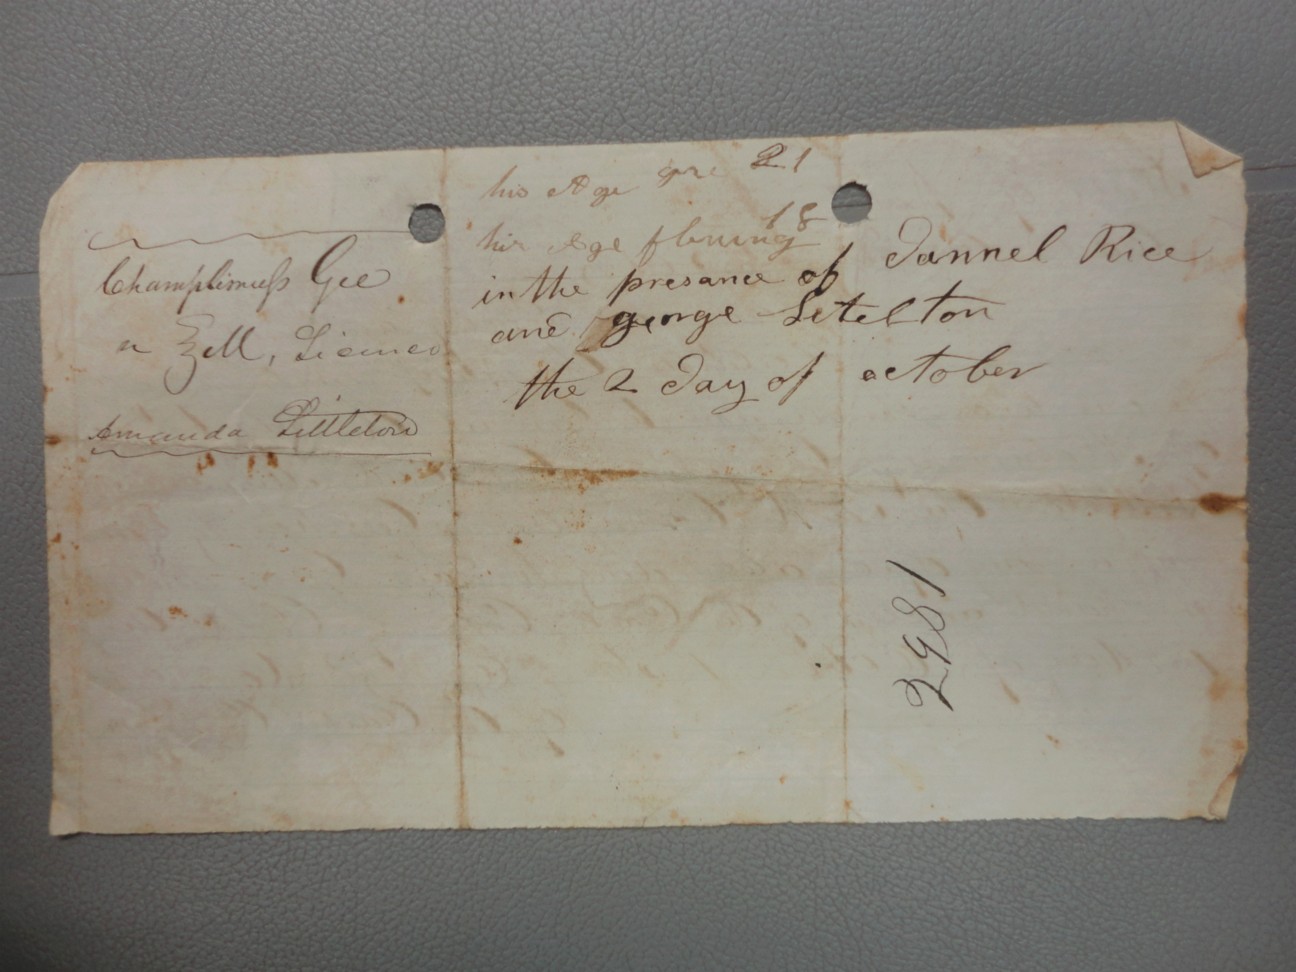 Champlimess Gee
Zell, License
Amanda Littleton
his Age 21
his Age 18
in the presance of Dannel Rice
and george Litelton
the 2 day of october
2981